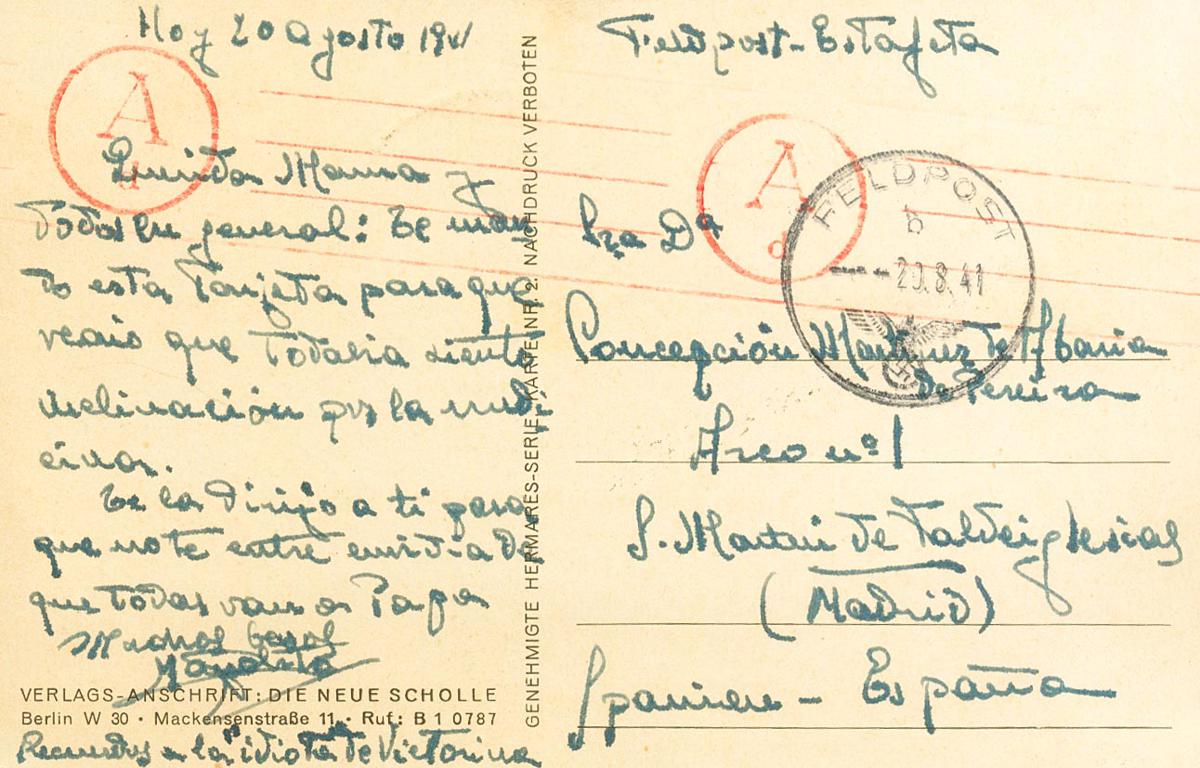 Hoy 20 Agosto 1941
Querida Mama y
Todas en general: Te man
do esta Tarjeta para que
veais que Todavia siento
inclinación por la medi
cina.
Te la dirijo a ti para
que no te entre envidia de
que todas van a Papa
Muchos besos
VERLAGS-ANSCHRIFT: DIE NEUE SCHOLLE
Berlin W 30 • Mackensenstraße 11 • Ruf: B 1 0787
Recuerdos a la idiota de Victorina
GENEHMIGTE HERMARES-SERIE, KARTE NR. 2. NACHDRUCK VERBOTEN
Feldpost-Estafeta
A
d
A
d
FELDPOST
b
20.8.41
Sra Dª
Concepción Martinez de
de Pereira
Arco nº 1
S. Martin de Valdeiglesias
(Madrid)
Spanien - España